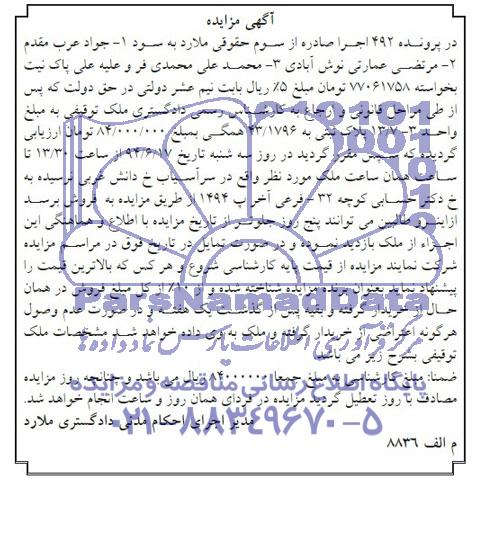 آگهی مزایده
در پرونده ۴۹۲ اجرا صادره از سوم حقوقی ملارد به سود ۱- جواد عرب مقدم
۲- مرتضی عمارتی نوش آبادی ۳- محمد علی محمدی فر و علیه علی پاک نیت
بخواسته ۷۷۰۶۱۷۵۸ تومان مبلغ ۵٪ ریال بابت نیم عشر دولتی در حق دولت که پس
از طی مراحل قانونی و ارجاع به کارشناس رسمی دادگستری ملک توقیفی به مبلغ
واحد ۳- ۱۳/۷ پلاک ثبتی به ۴۳/۱۷۹۶ همگی بمبلغ ۸۴/۰۰۰/۰۰۰ تومان ارزیابی
گردیده و سپس مقرر گردید در روز سه شنبه تاریخ ۹۴/۶/۱۷ از ساعت ۱۳/۳۰ تا
ساعت همان ساعت ملک مورد نظر واقع در سرآسیاب خ دانش غربی نرسیده به
خ دکتر حسابی کوچه ۳۲ - فرعی آخر پ ۱۴۹۴ از طریق مزایده به فروش برسد
ازاینرو طالبین می توانند پنج روز جلوتر از تاریخ مزایده با اطلاع و هماهنگی این
اجراء از ملک بازدید نموده و در صورت تمایل در تاریخ فوق در مراسم مزایده
شرکت نمایند مزایده از قیمت پایه کارشناسی شروع و هر کس که بالاترین قیمت را
پیشنهاد نماید بعنوان برنده مزایده شناخته شده و ۱۰٪ از کل مبلغ فروش در همان
حال از خریدار گرفته و بقیه پس از گذشت یک هفته و در صورت عدم وصول
هرگونه اعتراضی از خریدار گرفته و ملک به وی داده خواهد شد مشخصات ملک
توقیفی بشرح زیر می باشد
ضمنا: مبلغ کارشناسی به مبلغ جمعا ۸۴۰۰۰۰۰۰ ریال می باشد و چنانچه روز مزایده
مصادف با روز تعطیل گردید مزایده در فردای همان روز و ساعت انجام خواهد شد.
مدیر اجرای احکام مدنی دادگستری ملارد
م الف ۸۸۳۶
ParsNamadData
مرکز فرآوری اطلاعات پارس نماد داده ها
پایگاه اطلاع رسانی مناقصه و مزایده
۰۲۱-۸۸۳۴۹۶۷۰-۵